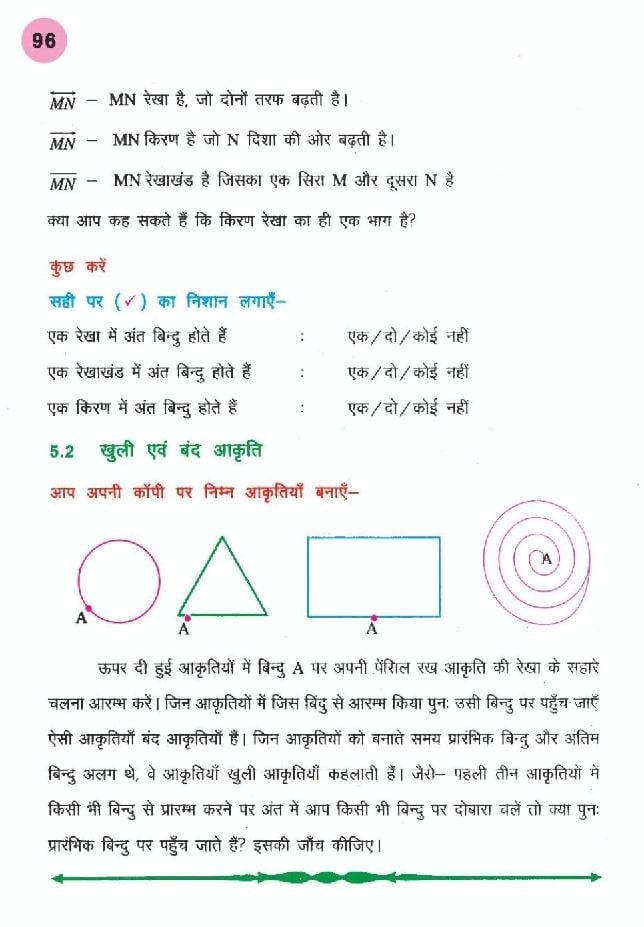 96
MN – MN रेखा है, जो दोनों तरफ बढ़ती है।
MN – MN किरण है जो N दिशा की ओर बढ़ती है।
MN – MN रेखाखंड है जिसका एक सिरा M और दूसरा N है
क्या आप कह सकते हैं कि किरण रेखा का ही एक भाग है?
कुछ करें
सही पर (✓) का निशान लगाएँ–
एक रेखा में अंत बिन्दु होते हैं : एक/दो/कोई नहीं
एक रेखाखंड में अंत बिन्दु होते हैं : एक/दो/कोई नहीं
एक किरण में अंत बिन्दु होते हैं : एक/दो/कोई नहीं
5.2 खुली एवं बंद आकृति
आप अपनी कॉपी पर निम्न आकृतियाँ बनाएँ–
A A A A
ऊपर दी हुई आकृतियों में बिन्दु A पर अपनी पेंसिल रख आकृति की रेखा के सहारे
चलना आरम्भ करें। जिन आकृतियों में जिस बिंदु से आरम्भ किया पुनः उसी बिन्दु पर पहुँच जाएँ
ऐसी आकृतियाँ बंद आकृतियाँ हैं। जिन आकृतियों को बनाते समय प्रारंभिक बिन्दु और अंतिम
बिन्दु अलग थे, वे आकृतियाँ खुली आकृतियाँ कहलाती हैं। जैसे– पहली तीन आकृतियों में
किसी भी बिन्दु से प्रारम्भ करने पर अंत में आप किसी भी बिन्दु पर दोबारा चलें तो क्या पुनः
प्रारंभिक बिन्दु पर पहुँच जाते हैं? इसकी जाँच कीजिए।